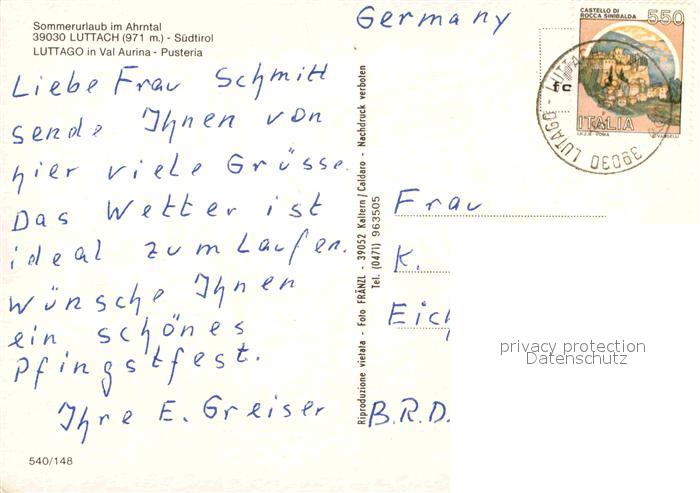 Sommerurlaub im Ahrntal
39030 LUTTACH (971 m.) - Südtirol
LUTTAGO in Val Aurina - Pusteria
Liebe Frau Schmitt
sende Ihnen von
hier viele Grüsse.
Das Wetter ist
ideal zum Laufen.
Wünsche Ihnen
ein schönes
Pfingstfest.
Ihre E. Greiser
540/148
Riproduzione vietata - Foto FRÄNZL - 39052 Kaltern/Caldaro - Nachdruck verboten
Tel. (0471) 963505
Germany
CASTELLO DI
ROCCA SINIBALDA
550
ITALIA
I.P.Z.S. - ROMA
39030 LUTAGO - LUTTA
fc
Frau
K.
Eich
B.R.D.
privacy protection
Datenschutz